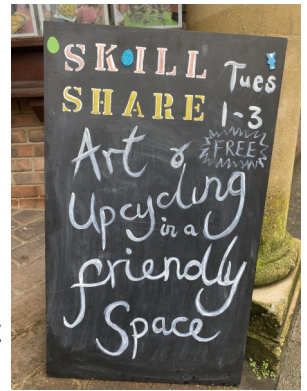 SKILL Tues
SHARE 1-3
FREE
Art &
Upcycling
in a
friendly
Space